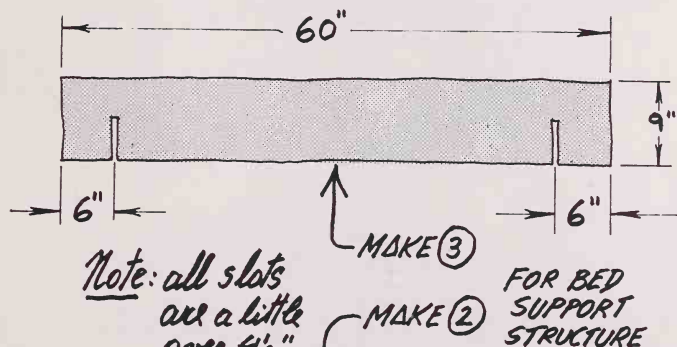 60"
9"
6"
6"
MAKE ③
Note: all slots
are a little
MAKE ②
FOR BED
SUPPORT
STRUCTURE
over 4½"